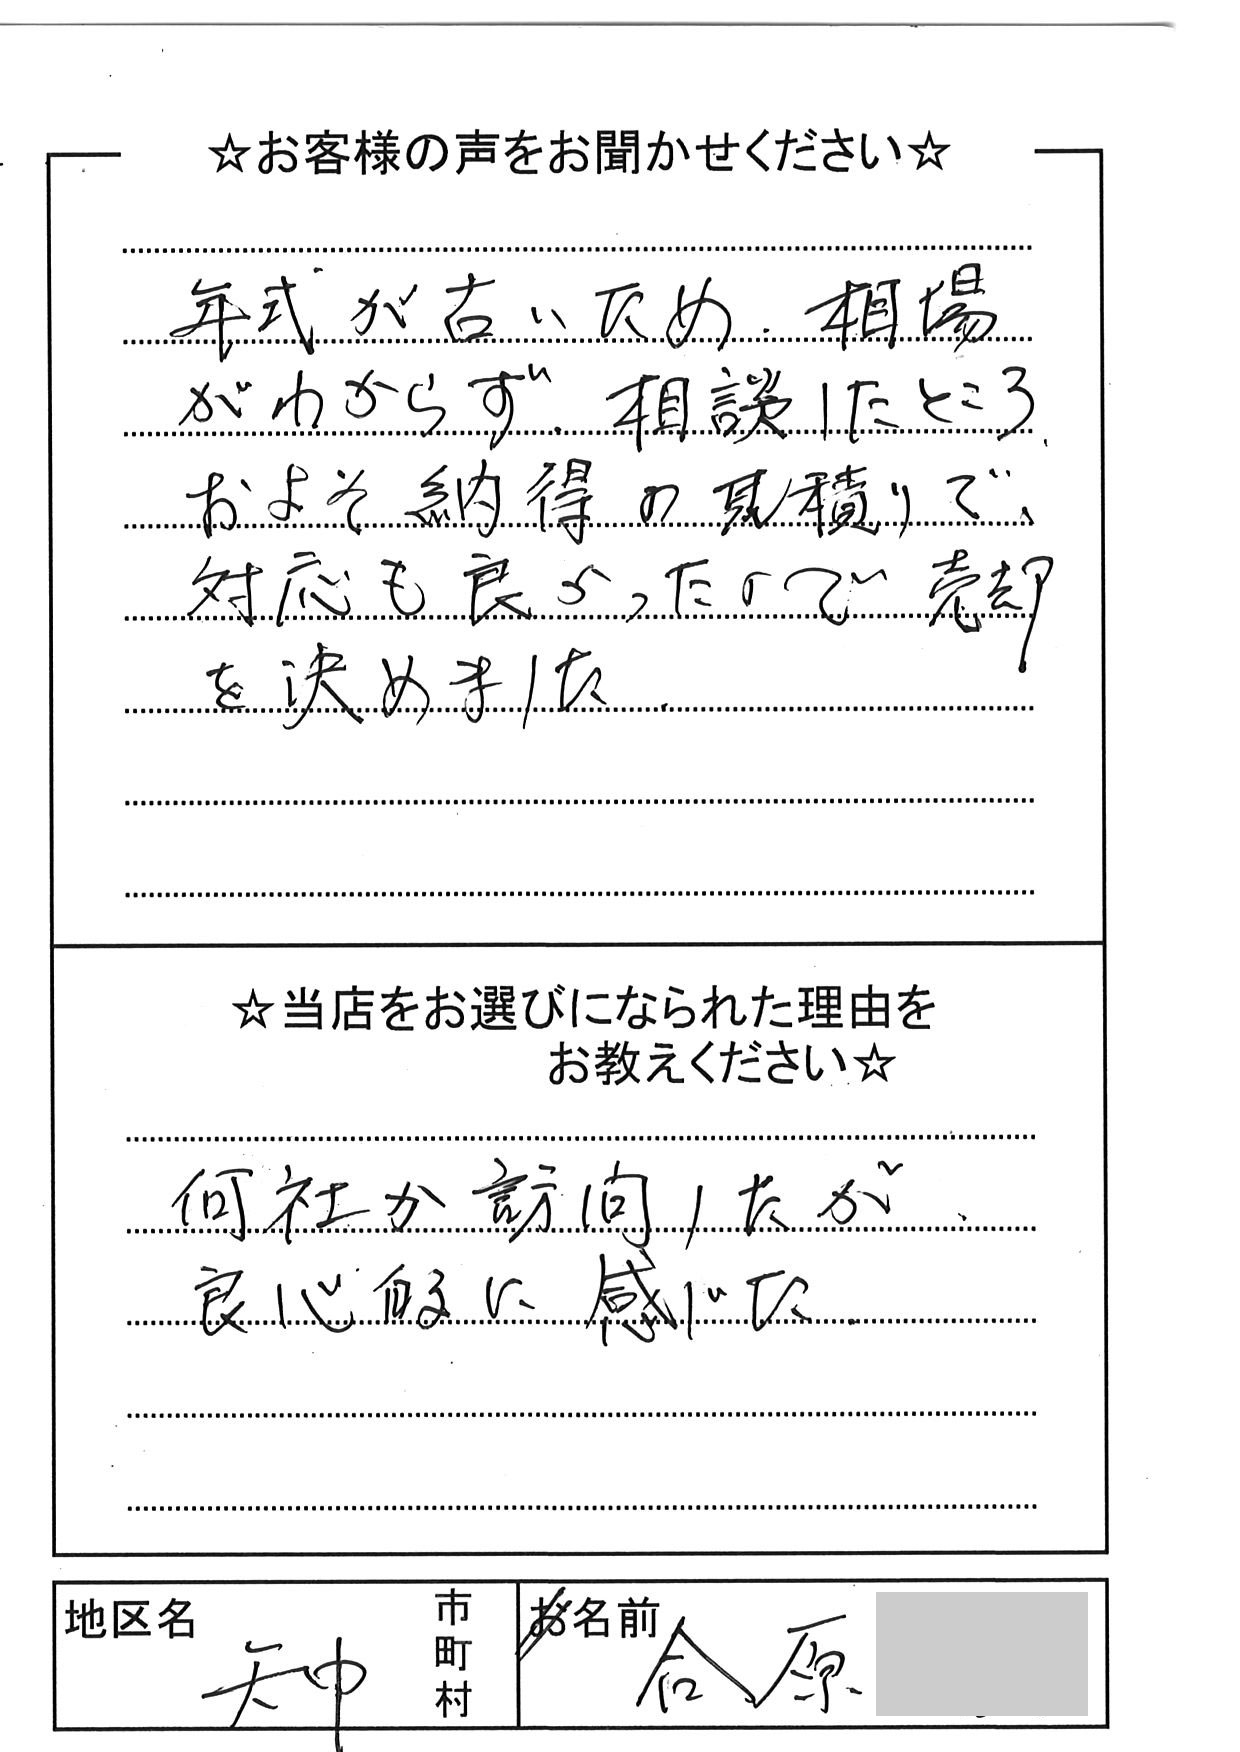 ☆お客様の声をお聞かせください☆
年式が古いため、相場
がわからず、相談したところ、
およそ納得の見積りで、
対応も良かったので売却
を決めました。
☆当店をお選びになられた理由を
お教えください☆
何社か訪問したが、
良心的に感じた。
地区名
市
町
村
お名前
合原